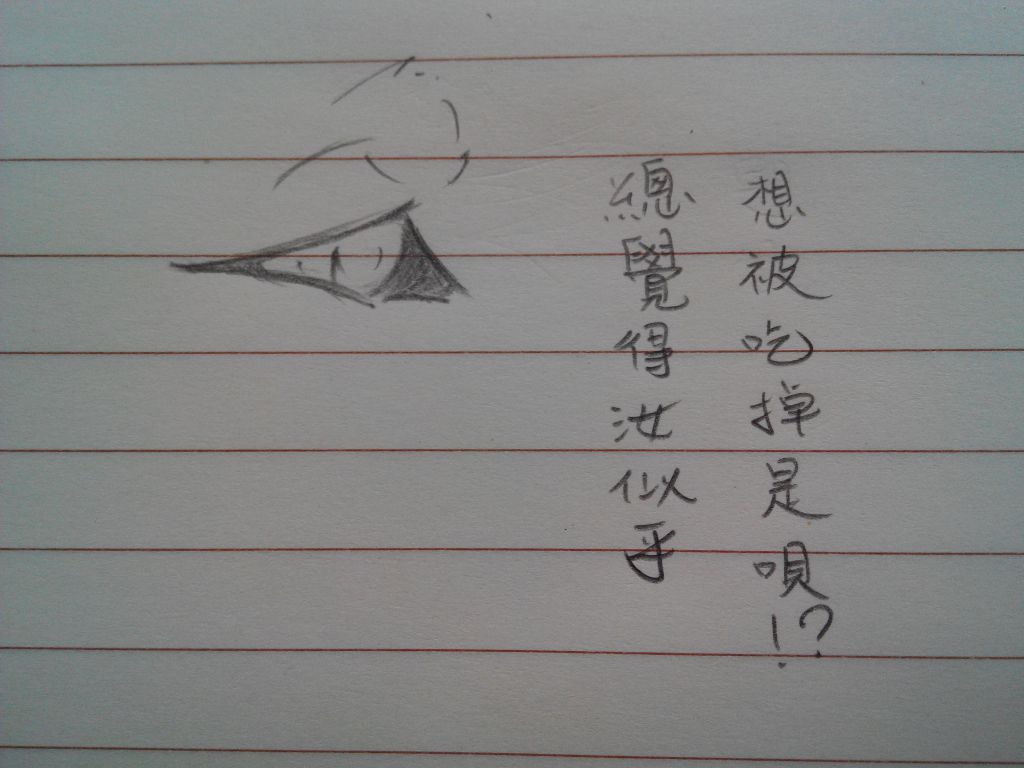 總覺得汝似乎
想被吃掉是唄!?